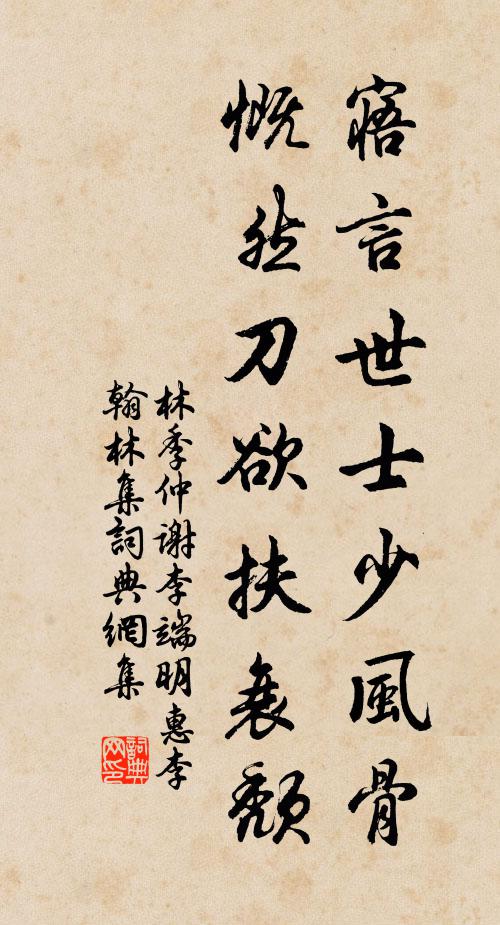 寤言世士少風骨
慨然刀欲扶衰頹
林季仲謝李端明惠李
翰林集詞典網集
詞典網印